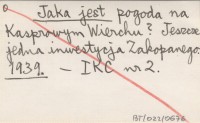 Jaka jest pogoda na
Kasprowym Wierchu? Jeszcze
jedna inwestycja Zakopanego.
1939. – IKC nr 2.
BT/022/0676